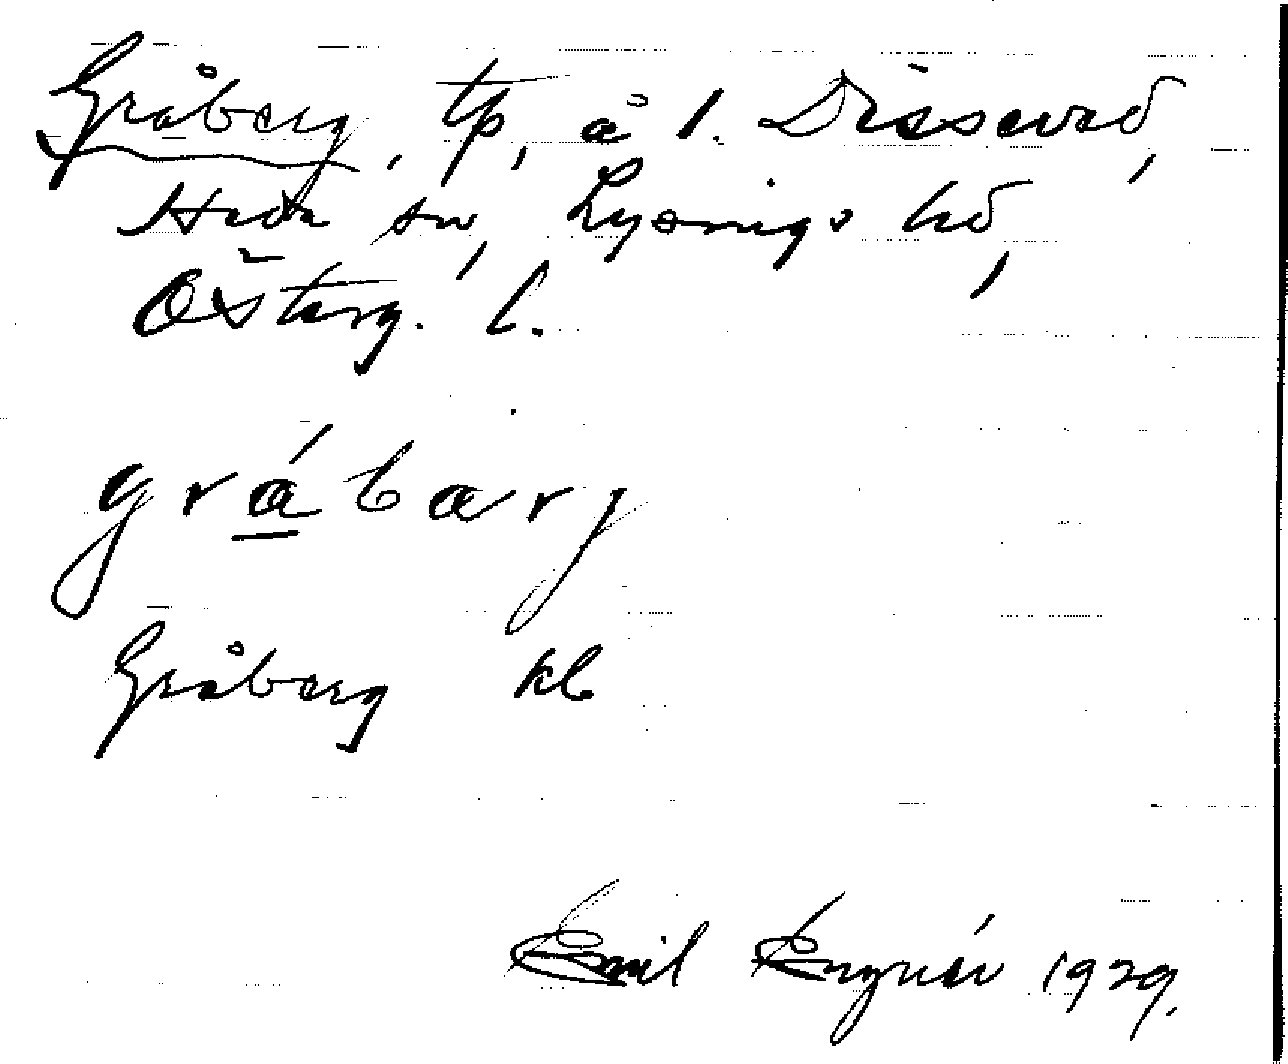 Gråberg, tp, å 1. Disseved,
Heda sn, Lysings hd,
Österg. l.
gråbarj
Gråberg kb
Emil Engnér 1929.